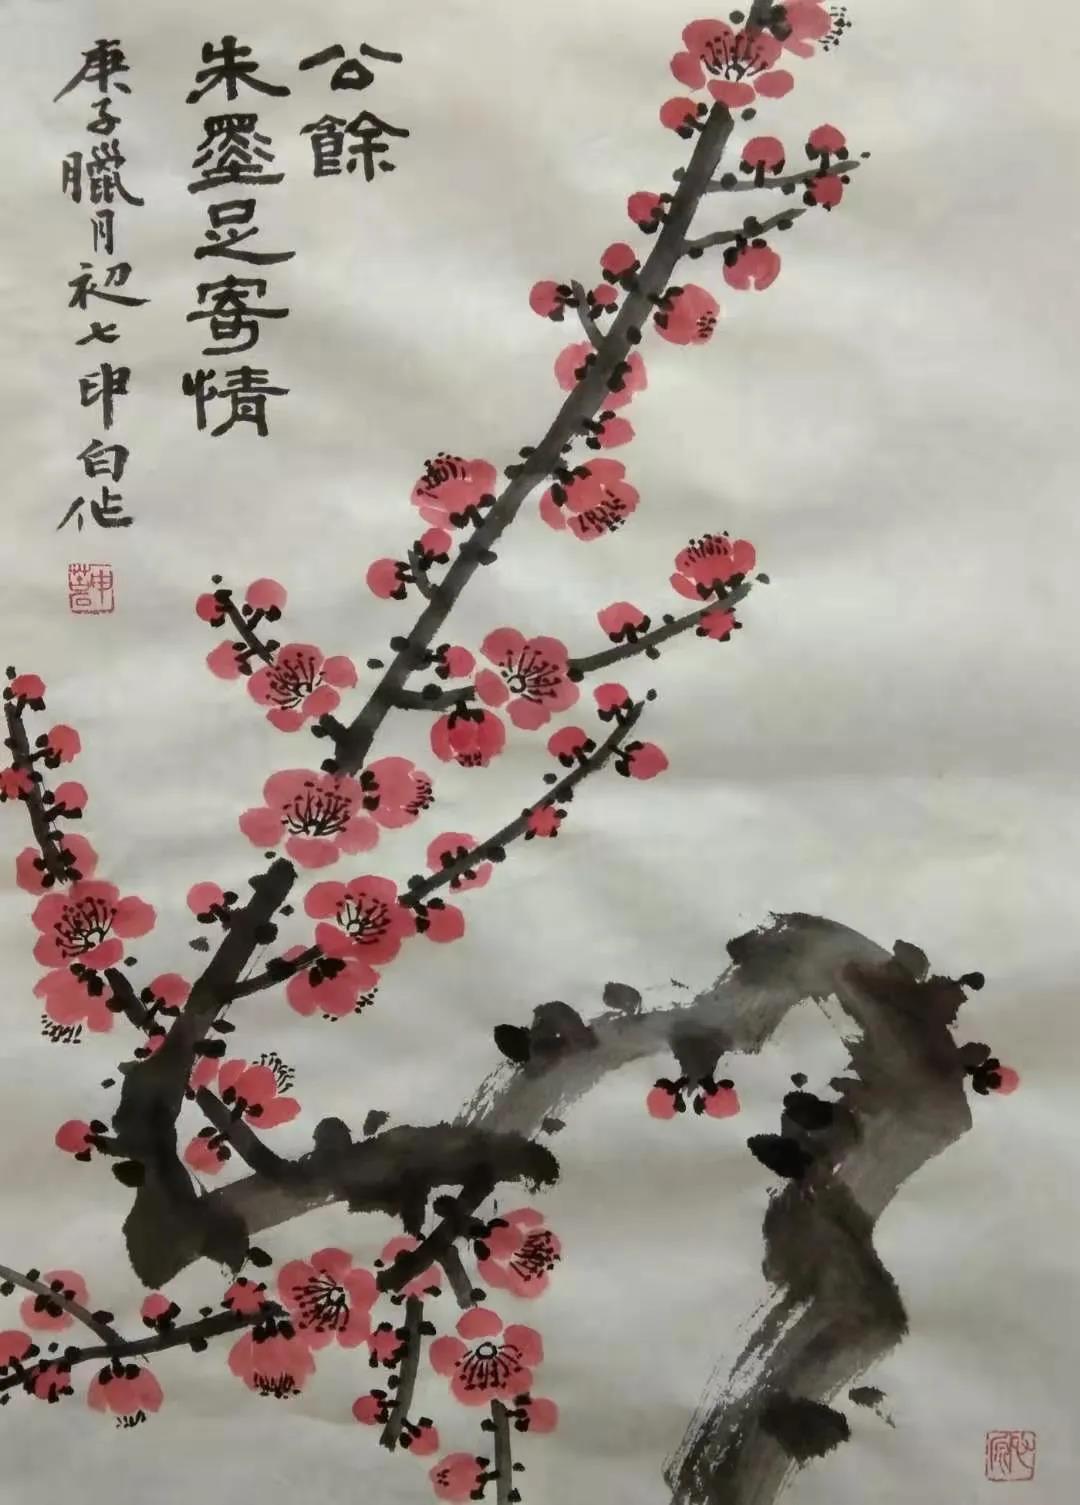 公餘
朱墨足寄情
庚子臘月初七印白作